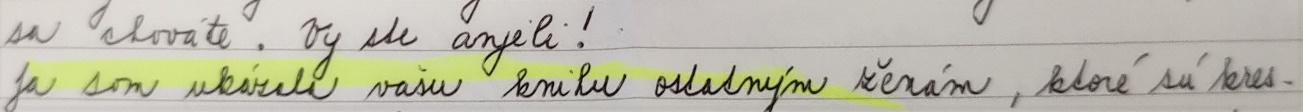 sa chováte. Vy ste anjeli!
Ja som ukázala vašu knihu ostatným ženám, ktoré sú kres-